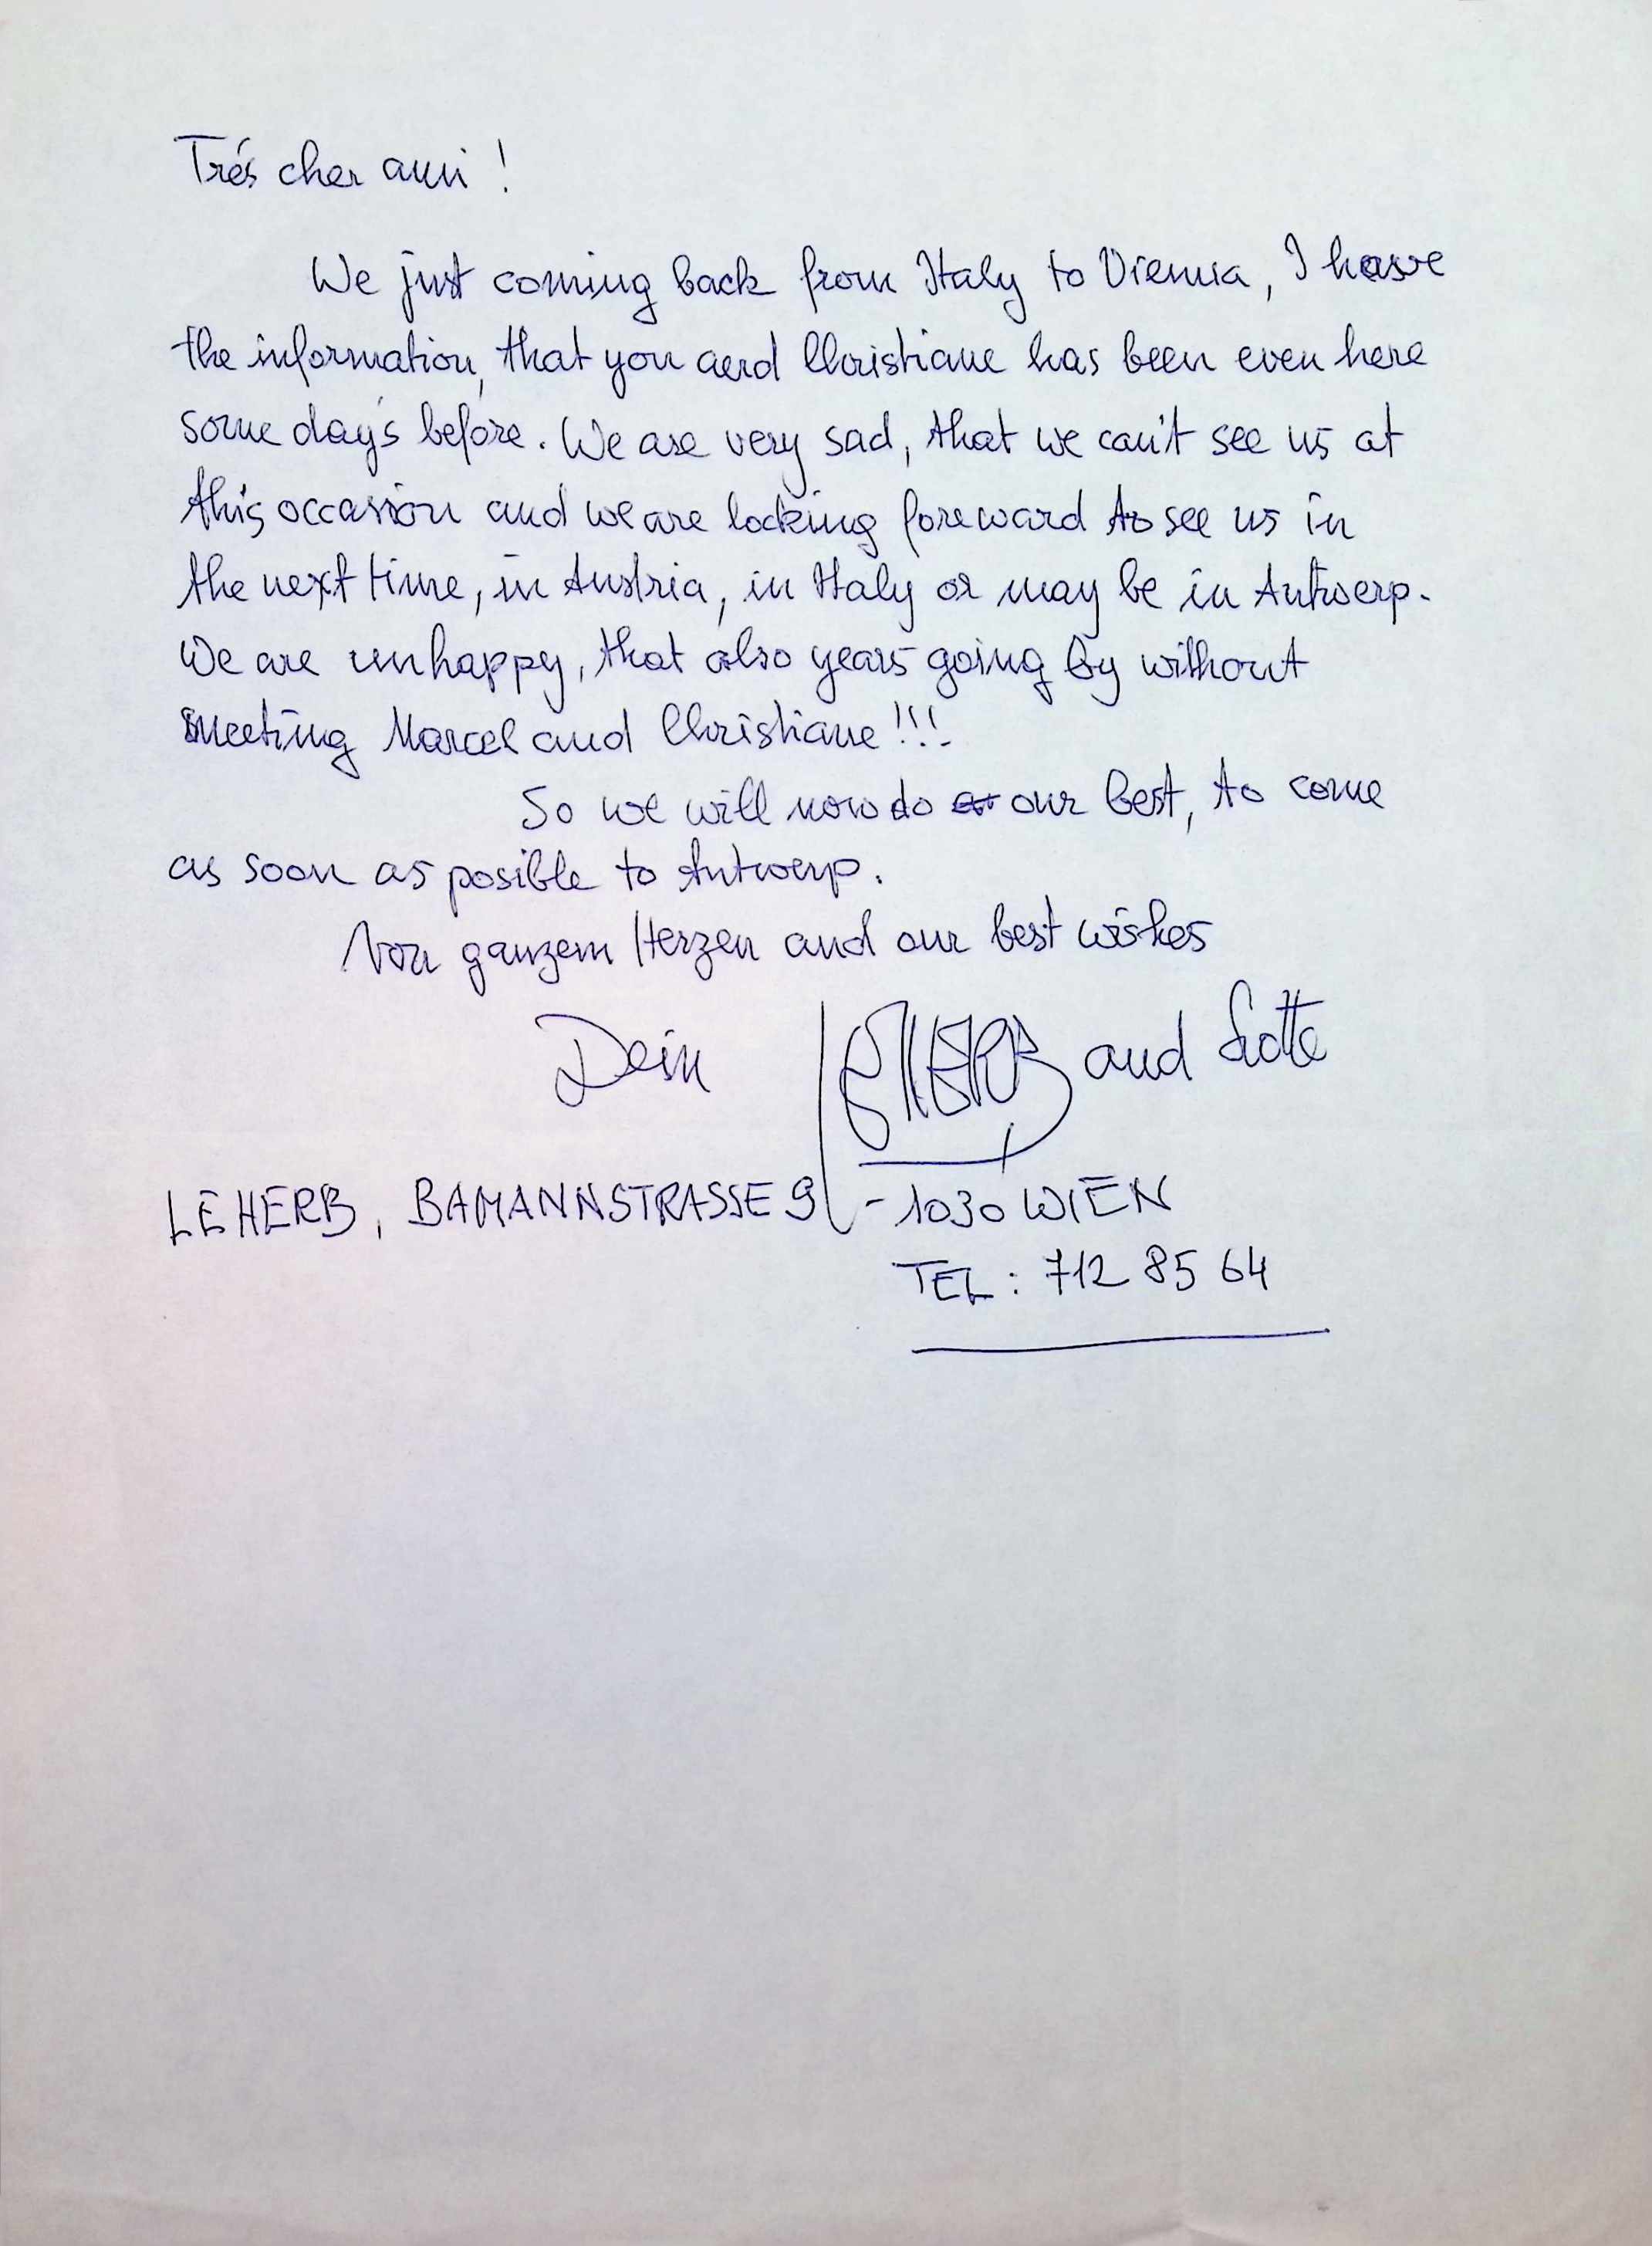 Trés cher ami !
We just coming back from Italy to Vienna, I have
the information, that you and Christiane has been even here
some days before. We are very sad, that we can't see us at
this occasion and we are looking foreward to see us in
the next time, in Austria, in Italy or may be in Antwerp.
We are unhappy, that also years going by without
meeting Marcel and Christiane !!!
So we will now do our best, to come
as soon as posible to Antwerp.
Von ganzem Herzen and our best wishes
Dein LEHERB and Lotte
LEHERB, BAMANNSTRASSE 9 - 1030 WIEN
TEL: 712 85 64